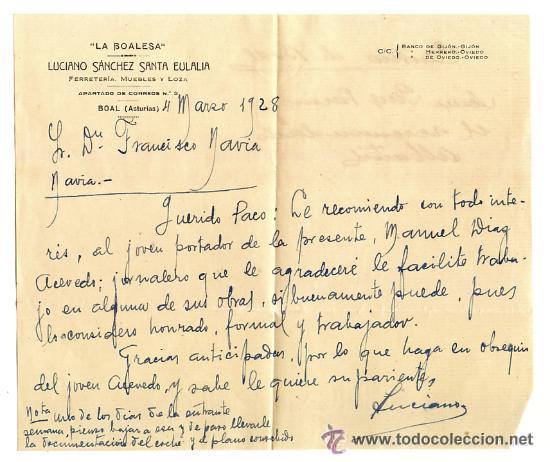 "LA BOALESA"
LUCIANO SÁNCHEZ SANTA EULALIA
FERRETERÍA, MUEBLES Y LOZA
APARTADO DE CORREOS N.º 2
BOAL (Asturias) 4 Marzo 1928
C/C. BANCO DE GIJÓN.-GIJÓN
" HERRERO.-OVIEDO
" DE OVIEDO.-OVIEDO
Sr. Dn. Francisco Navia
Navia.-
Querido Paco: Le recomiendo con todo inte-
rés, al joven portador de la presente, Manuel Diaz
Acevedo; jornalero que le agradeceré le facilite traba-
jo en alguna de sus obras, si buenamente puede, pues
lo considero honrado, formal y trabajador.
Gracias anticipadas, por lo que haga en obsequio
del joven Acevedo, y sabe le quiere su pariente,
Luciano
Nota uno de los dias de la entrante
semana, pienso bajar a esa y de paso llevarle
la documentación del coche y el plano
www.todocoleccion.net